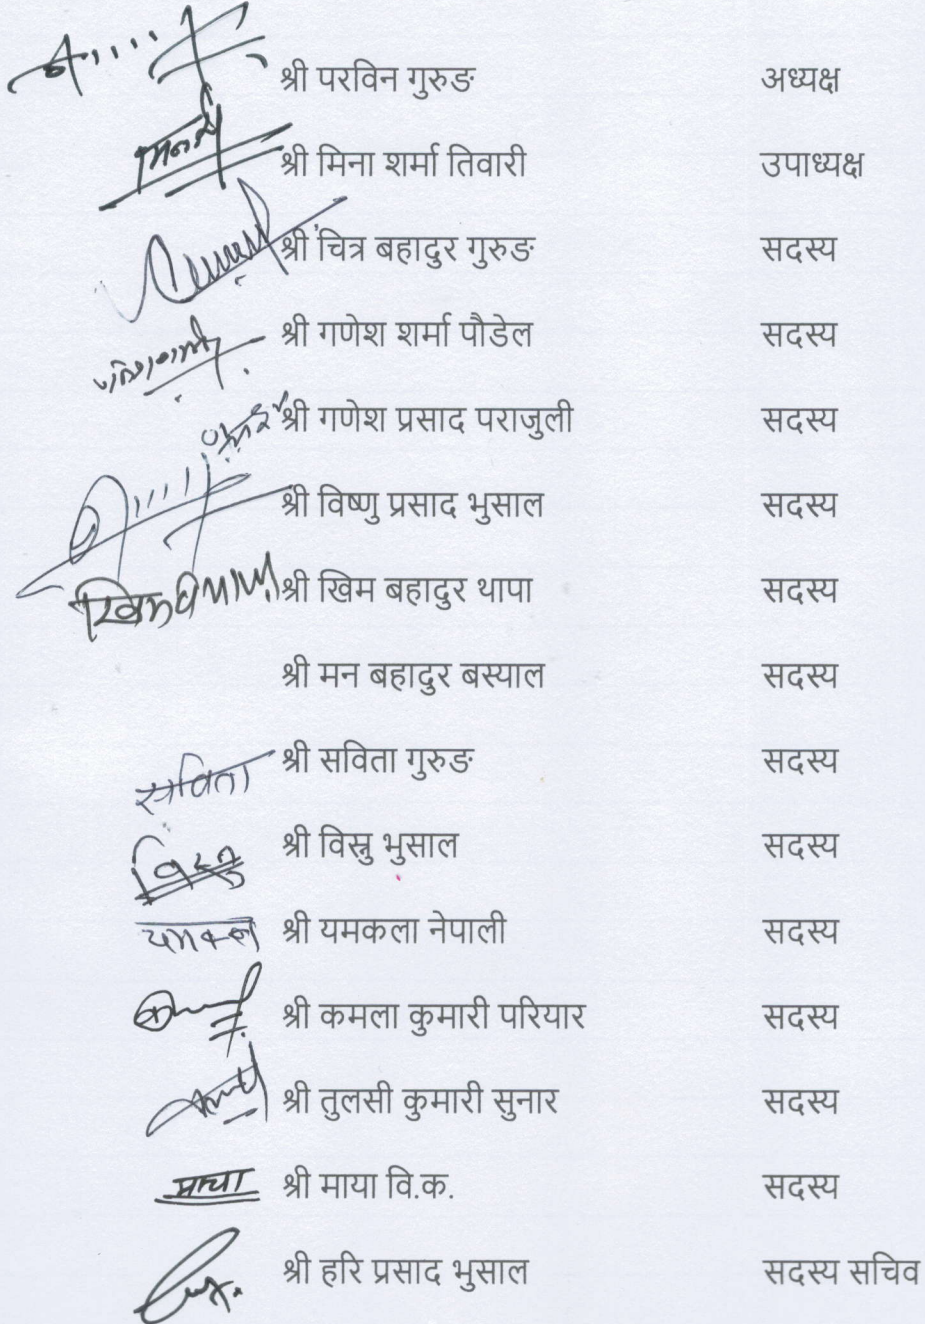 श्री परविन गुरुङ अध्यक्ष
श्री मिना शर्मा तिवारी उपाध्यक्ष
श्री चित्र बहादुर गुरुङ सदस्य
श्री गणेश शर्मा पौडेल सदस्य
श्री गणेश प्रसाद पराजुली सदस्य
श्री विष्णु प्रसाद भुसाल सदस्य
श्री खिम बहादुर थापा सदस्य
श्री मन बहादुर बस्याल सदस्य
सविता श्री सविता गुरुङ सदस्य
श्री विस्नु भुसाल सदस्य
श्री यमकला नेपाली सदस्य
श्री कमला कुमारी परियार सदस्य
श्री तुलसी कुमारी सुनार सदस्य
माया श्री माया वि.क. सदस्य
श्री हरि प्रसाद भुसाल सदस्य सचिव